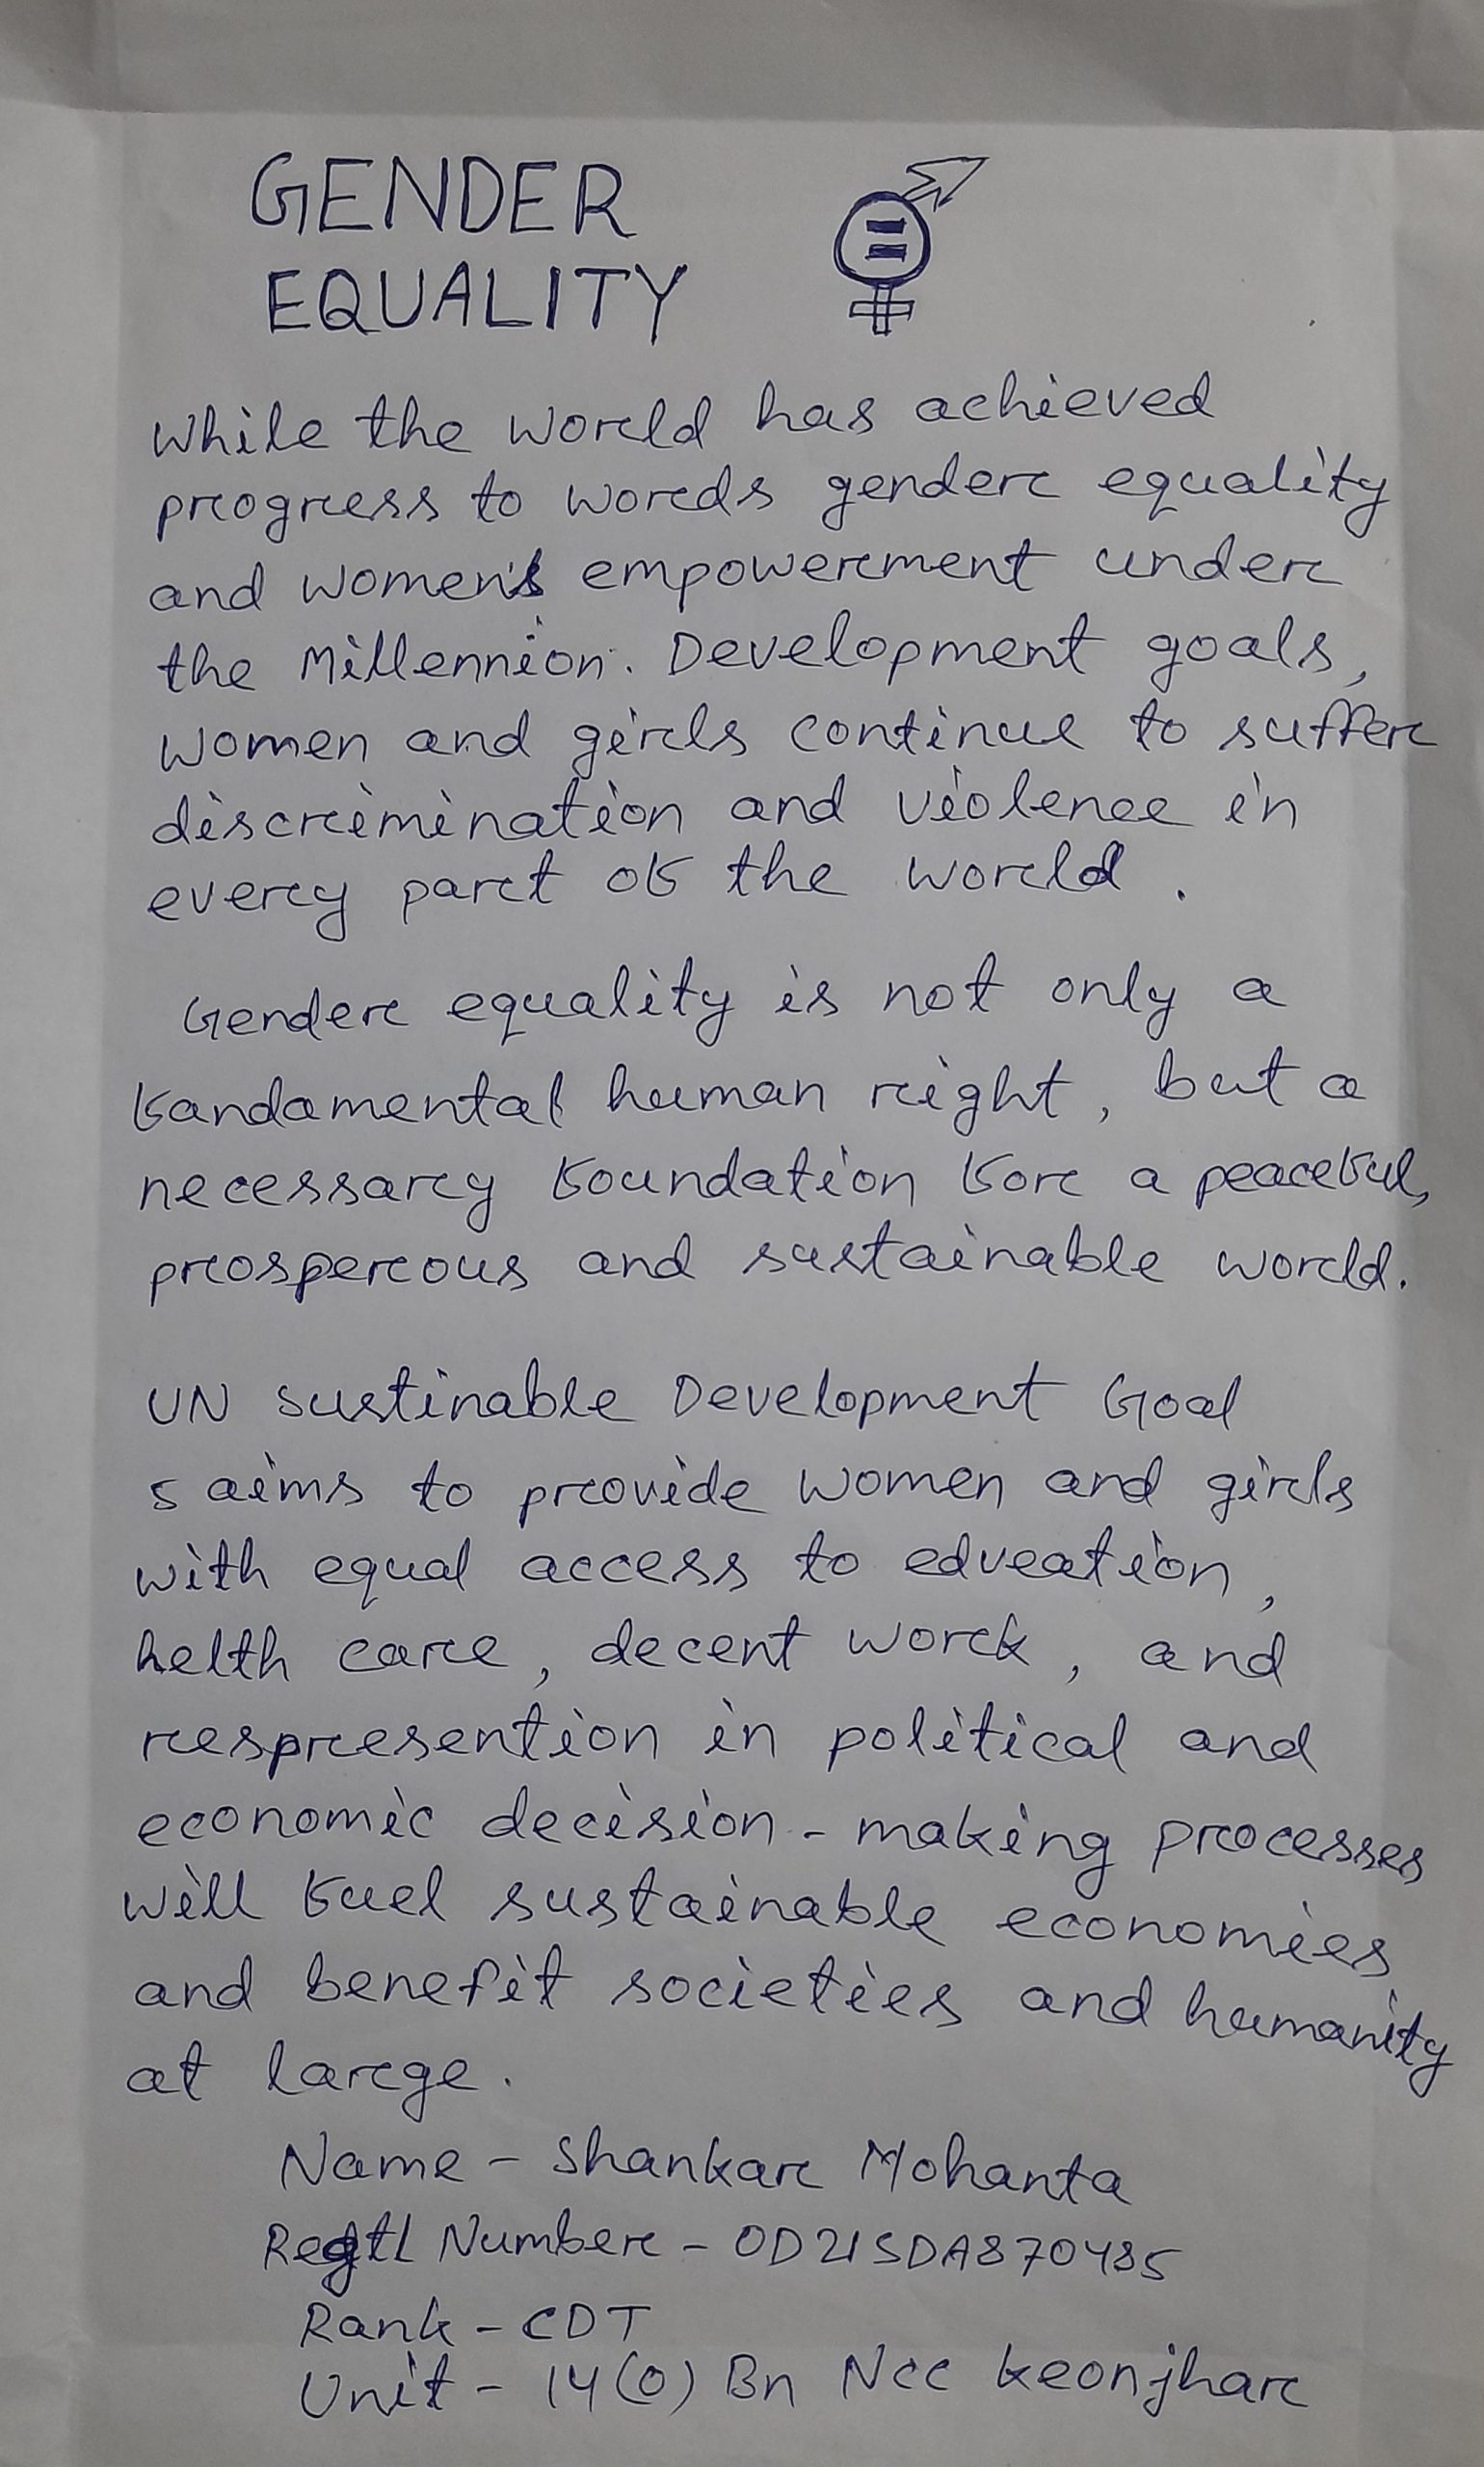 GENDER
EQUALITY
While the world has achieved
progress to words gender equality
and women's empowerment under
the Millennion. Development goals,
women and girls continue to suffer
discrimination and violence in
every part of the world.
Gender equality is not only a
fandamental human right, but a
necessary foundation for a peaceful,
prosperous and sustainable world.
UN sustinable Development Goal
5 aims to provide women and girls
with equal access to education,
helth care, decent work, and
respresention in political and
economic decision-making processes
will fuel sustainable economies
and benefit societies and humanity
at large.
Name - Shankar Mohanta
Regtl Number - OD21SDA870485
Rank - CDT
Unit - 14(O) Bn Ncc keonjhar